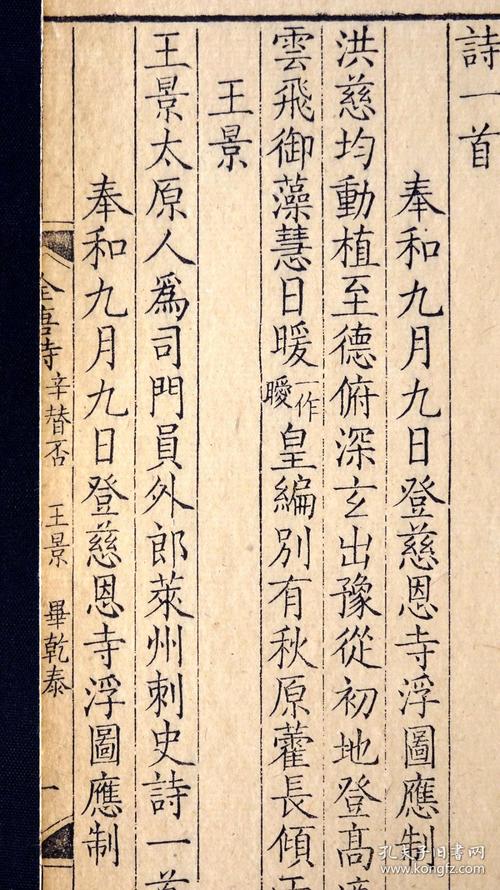 詩一首
奉和九月九日登慈恩寺浮圖應制
洪慈均動植至德俯深玄出豫從初地登髙
雲飛御藻慧日暖一作曖皇編別有秋原藿長傾
王景
王景太原人爲司門員外郎萊州刺史詩一首
奉和九月九日登慈恩寺浮圖應制
全唐詩 辛替否 王景 畢乾泰 一
孔夫子旧书网
www.kongfz.com